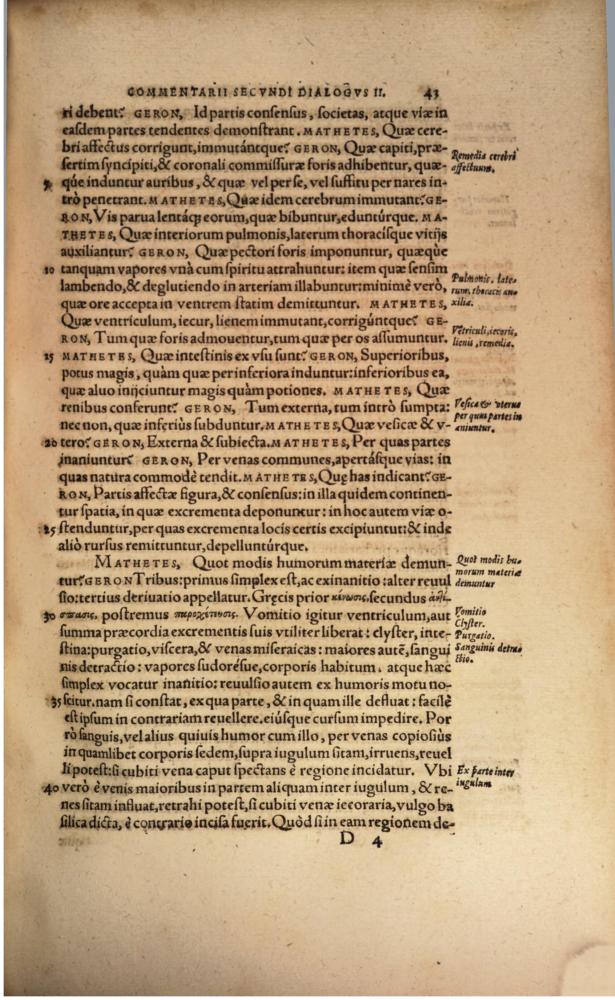 COMMENTARII SECVNDI DIALOGVS II. 43
ri debent? GERON, Id partis consensus, societas, atque viæ in
easdem partes tendentes demonstrant. MATHETES, Quæ cere-
bri affectus corrigunt, immutántque? GERON, Quæ capiti, præ-
sertim syncipiti, & coronali commissuræ foris adhibentur, quæ-
Remedia cerebri
affectuum.
que induntur auribus, & quæ vel per se, vel suffitu per nares in-
trò penetrant. MATHETES, Quæ idem cerebrum immutant? GE-
RON, Vis parua lentáq; eorum, quæ bibuntur, edunturque. MA-
THETES, Quæ interiorum pulmonis, laterum thoracisque vitijs
auxiliantur? GERON, Quæ pectori foris imponuntur, quæque
10 tanquam vapores vnà cum spiritu attrahuntur: item quæ sensim
lambendo, & deglutiendo in arteriam illabuntur: minimè verò,
quæ ore accepta in ventrem statim demittuntur. MATHETES,
Pulmonis, late-
rum, thoracis au-
xilia.
Quæ ventriculum, iecur, lienem immutant, corrigúntque? GE-
RON, Tum quæ foris admouentur, tum quæ per os assumuntur.
Vẽtriculi, iecoris,
lienis, remedia.
15 MATHETES, Quæ intestinis ex vsu sunt? GERON, Superioribus,
potus magis, quàm quæ per inferiora induntur: inferioribus ea,
quæ aluo inijciuntur magis quàm potiones. MATHETES, Quæ
renibus conferunt? GERON, Tum externa, tum intrò sumpta:
nec non, quæ inferiùs subduntur. MATHETES, Quæ vesicæ & v-
Vesica & vterus
per quas partes in
aniuntur.
20 tero? GERON, Externa & subiecta. MATHETES, Per quas partes
inaniuntur? GERON, Per venas communes, apertásque vias: in
quas natura commodè tendit. MATHETES, Quę has indicant? GE-
RON, Partis affectæ figura, & consensus: in illa quidem continen-
tur spatia, in quæ excrementa deponuntur: in hoc autem viæ o-
25 stenduntur, per quas excrementa locis certis excipiuntur: & inde
aliò rursus remittuntur, depellunturque.
MATHETES, Quot modis humorum materiæ demun-
tur? GERON Tribus: primus simplex est, ac exinanitio: alter reuul
sio: tertius deriuatio appellatur. Gręcis prior κένωσις, secundus ἀντί-
Quot modis hu-
morum materiæ
demuntur
30 σπασις, postremus παροχέτευσις. Vomitio igitur ventriculum, aut
summa præcordia excrementis suis vtiliter liberat: clyster, inte-
stina: purgatio, viscera, & venas miseraicas: maiores autẽ, sangui
nis detractio: vapores sudoresue, corporis habitum. atque hæc
Vomitio
Clyster.
Purgatio.
Sanguinis detra-
ctio.
simplex vocatur inanitio: reuulsio autem ex humoris motu no-
35 scitur. nam si constat, ex qua parte, & in quam ille defluat: facilè
est ipsum in contrariam reuellere. eiúsque cursum impedire. Por
rò sanguis, vel alius quiuis humor cum illo, per venas copiosiùs
in quamlibet corporis sedem, supra iugulum sitam, irruens, reuel
li potest: si cubiti vena caput spectans è regione incidatur. Vbi
40 verò è venis maioribus in partem aliquam inter iugulum, & re-
Ex parte inter
iugulum
nes sitam influat, retrahi potest, si cubiti venæ iecoraria, vulgo ba
silica dicta, è contrario incisa fuerit. Quòd si in eam regionem de-
D 4